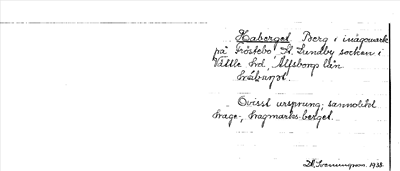 Haberget Berg i inägomark
på Gröstebo St. Lundby socken i
Vättle hd, Älfsborgs län
Ovisst ursprung; sannolikt
hage-, hagmarks-berget.
1938